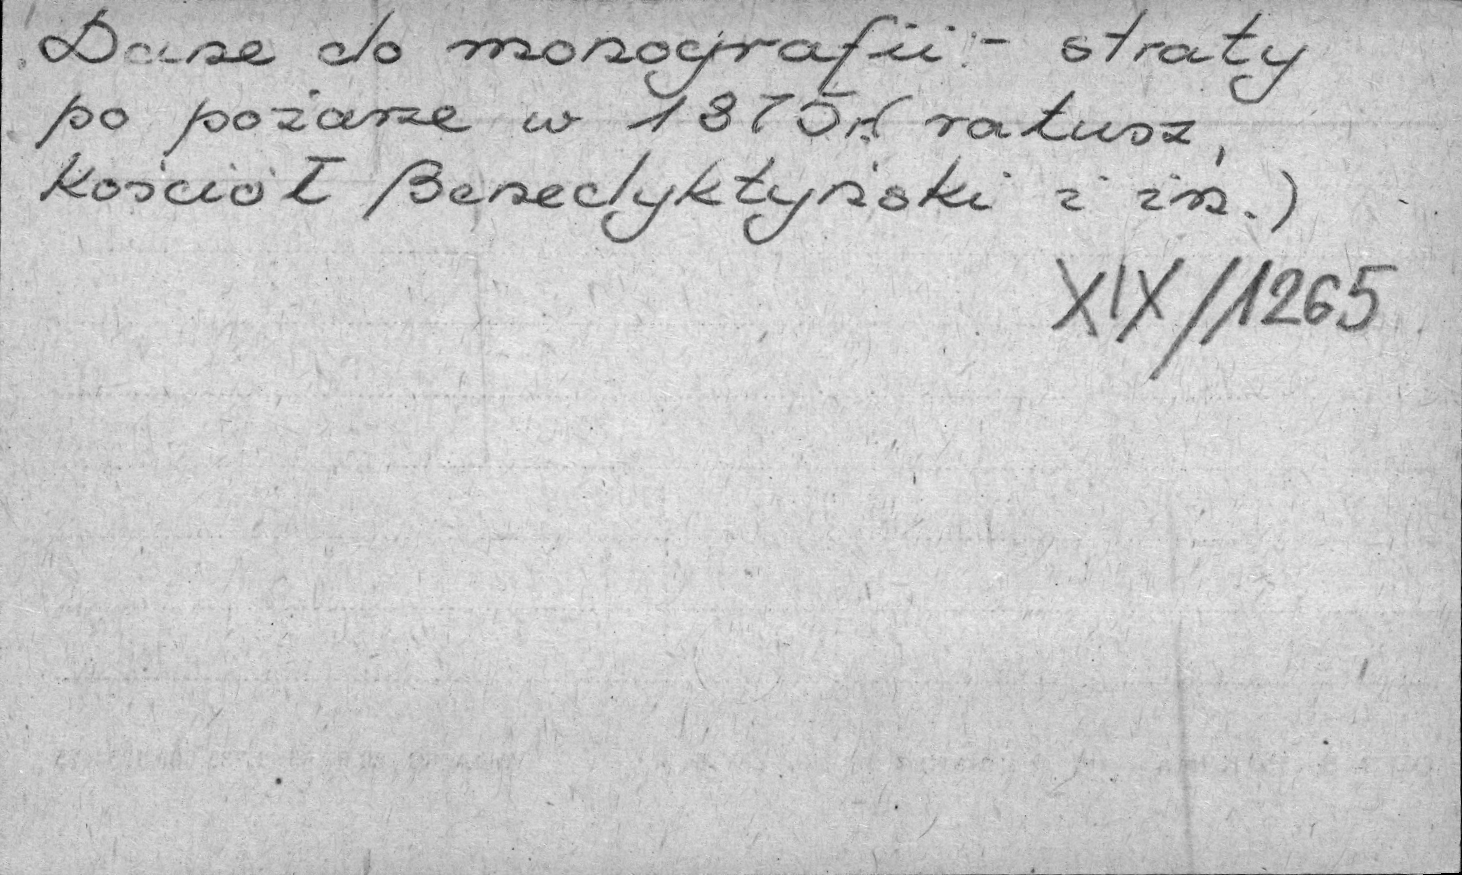 Dane do monografii - straty
po pożarze w 1875r. (ratusz,
Kościół Benedyktyński i in.)
XIX/1265